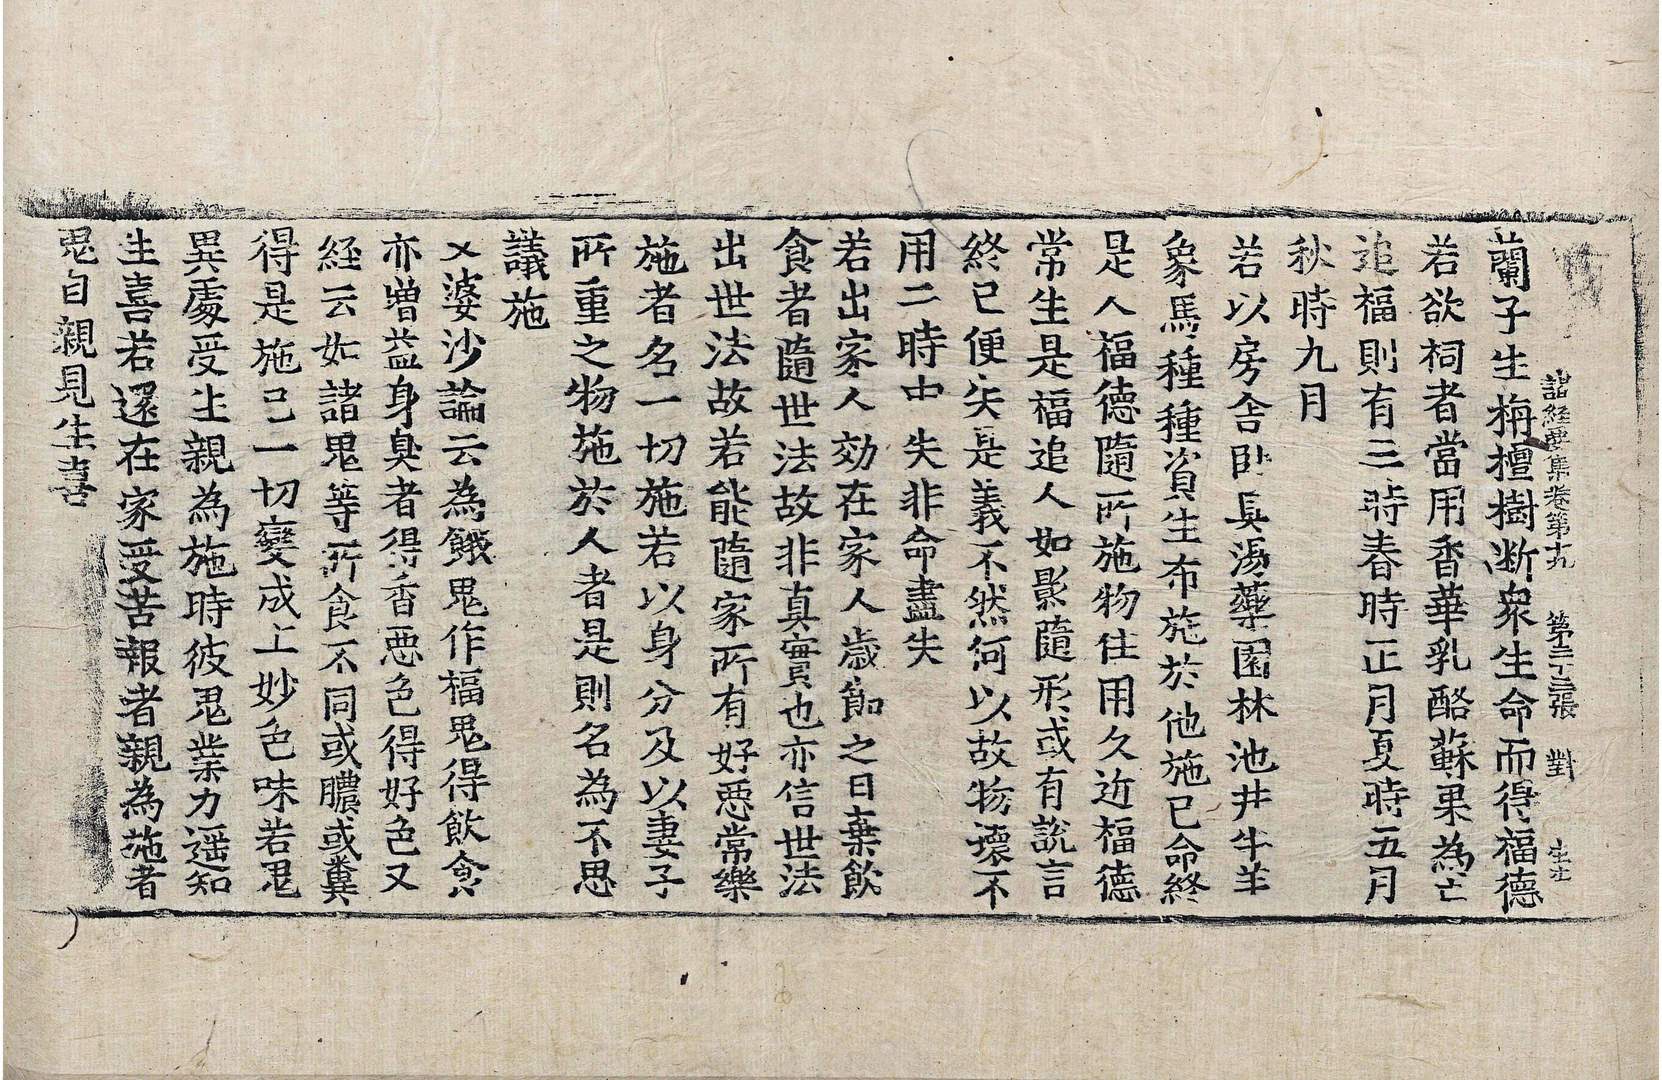 諸経要集卷第十九 第二十三張 對
蘭子生栴檀樹断衆生命而得福德
若欲祠者當用香華乳酪蘇果為亡
追福則有三時春時正月夏時五月
秋時九月
若以房舍卧具湯藥園林池井牛羊
象馬種種資生布施於他施已命終
是人福德隨所施物住用久近福德
常生是福追人如影隨形或有說言
終已便失是義不然何以故物壞不
用二時中失非命盡失
若出家人効在家人歲節之日棄飲
食者隨世法故非真實也亦信世法
出世法故若能隨家所有好惡常樂
施者名一切施若以身分及以妻子
所重之物施於人者是則名為不思
議施
又婆沙論云為餓鬼作福鬼得飲食
亦增益身臭者得香惡色得好色又
経云如諸鬼等所食不同或膿或糞
得是施已一切變成上妙色味若鬼
異處受生親為施時彼鬼業力遥知
生喜若還在家受苦報者親為施者
鬼自親見生喜